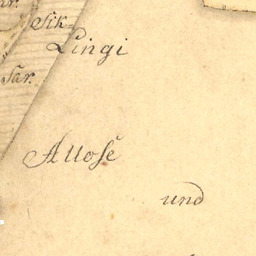 Sik=
Lingi
Sar.
Allose
und